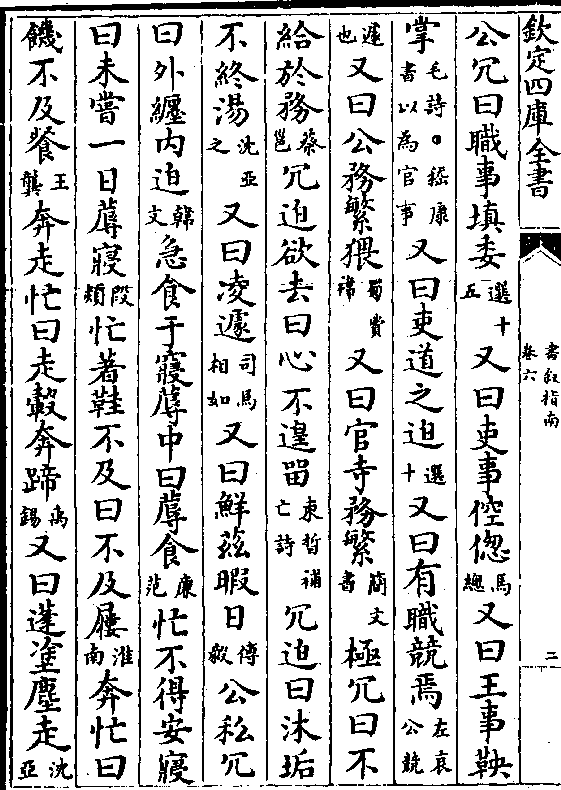 欽定四庫全書
書敘指南
卷六
二
公冗曰職事填委選十五又曰吏事倥偬馬總又曰王事鞅
掌毛詩〇嵇康書以為官事又曰吏道之迫選十又曰有職競焉左哀公競
遽也又曰公務繁猥蜀費禕又曰官寺務繁簡文書極冗曰不
給於務蔡邕冗迫欲去曰心不遑留束晳補亡詩冗迫曰沐垢
不終湯沈亞之又曰凌遽司馬相如又曰鮮茲暇日傅毅公私冗
曰外纏内迫韓文急食于寢蓐中曰蓐食廉范忙不得安寢
曰未嘗一日蓐寢段熲忙著鞋不及曰不及屨淮南奔忙曰
饑不及飡王龔奔走忙曰走轂奔蹄禹錫又曰蓬塗塵走沈亞